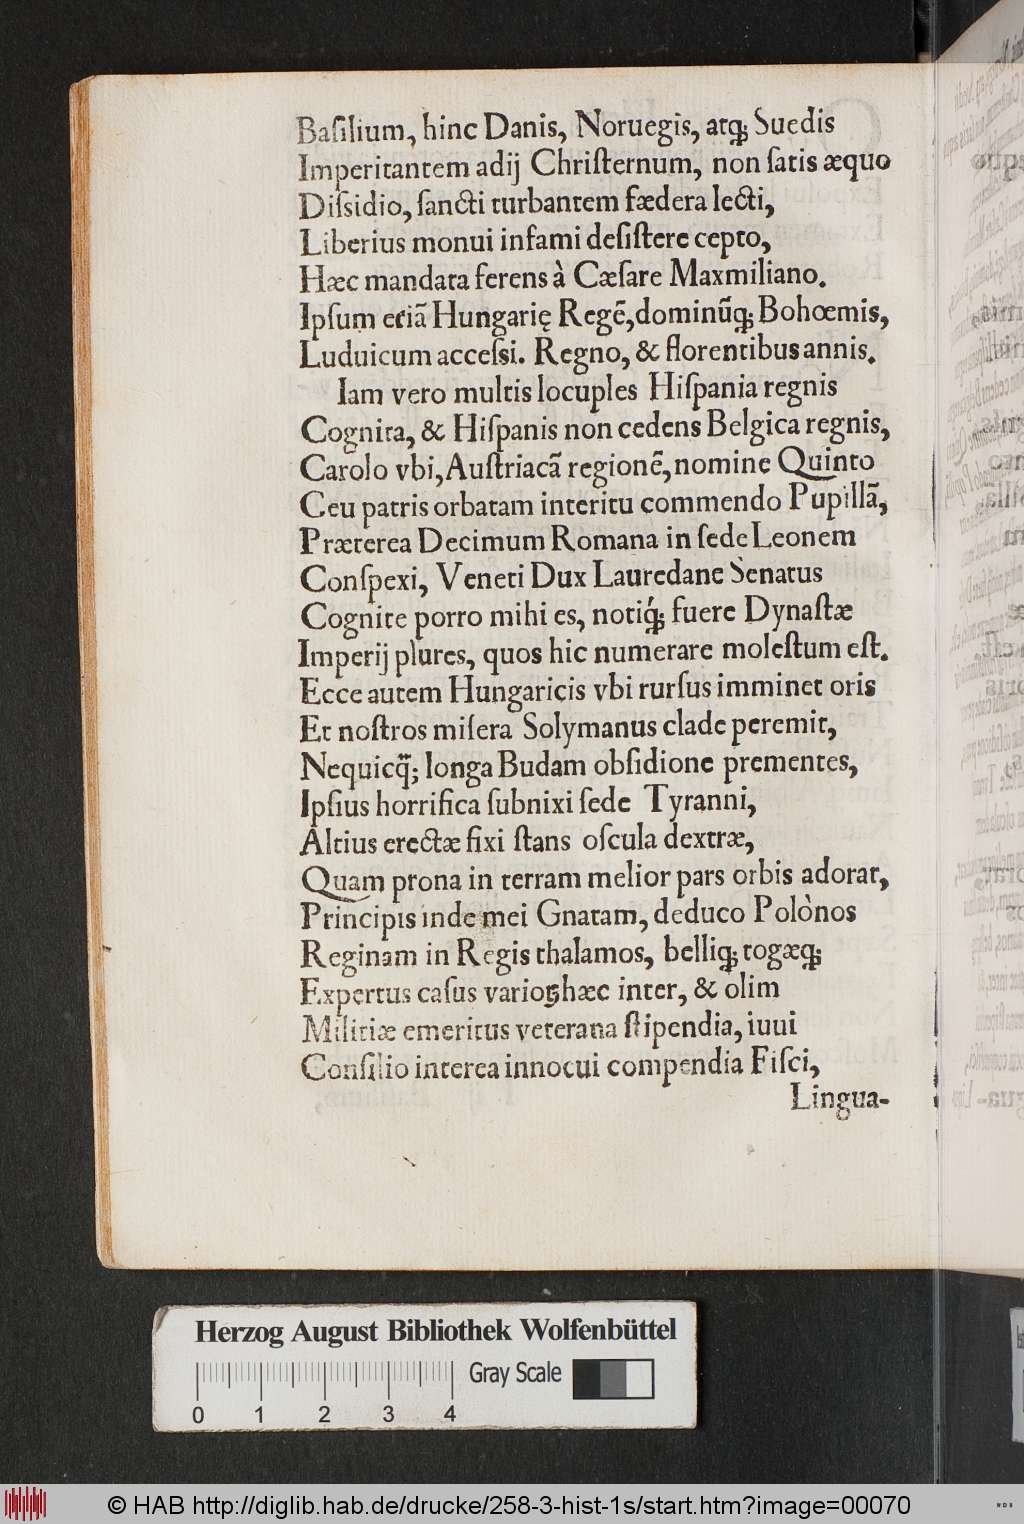 Baſilium, hinc Danis, Noruegis, atq; Suedis
Imperitantem adij Chriſternum, non ſatis æquo
Diſsidio, ſancti turbantem fædera lecti,
Liberius monui infami deſiſtere cepto,
Hæc mandata ferens à Cæſare Maxmiliano.
Ipſum etiã Hungarię Regẽ, dominũq; Bohœmis,
Luduicum acceſsi. Regno, & florentibus annis.
Iam vero multis locuples Hiſpania regnis
Cognita, & Hiſpanis non cedens Belgica regnis,
Carolo vbi, Auſtriacã regionẽ, nomine Quinto
Ceu patris orbatam interitu commendo Pupillã,
Præterea Decimum Romana in ſede Leonem
Conſpexi, Veneti Dux Lauredane Senatus
Cognite porro mihi es, notiq́; fuere Dynaſtæ
Imperij plures, quos hic numerare moleſtum eſt.
Ecce autem Hungaricis vbi rurſus imminet oris
Et noſtros miſera Solymanus clade peremit,
Nequicq̃; longa Budam obſidione prementes,
Ipſius horrifica ſubnixi ſede Tyranni,
Altius erectæ fixi ſtans oſcula dextræ,
Quam prona in terram melior pars orbis adorat,
Principis inde mei Gnatam, deduco Polònos
Reginam in Regis thalamos, belliq; togæq;
Expertus caſus varioꝝ hæc inter, & olim
Militiæ emeritus veterana ſtipendia, iuui
Conſilio interea innocui compendia Fiſci,
Lingua-
Herzog August Bibliothek Wolfenbüttel
Gray Scale
0 1 2 3 4
© HAB http://diglib.hab.de/drucke/258-3-hist-1s/start.htm?image=00070